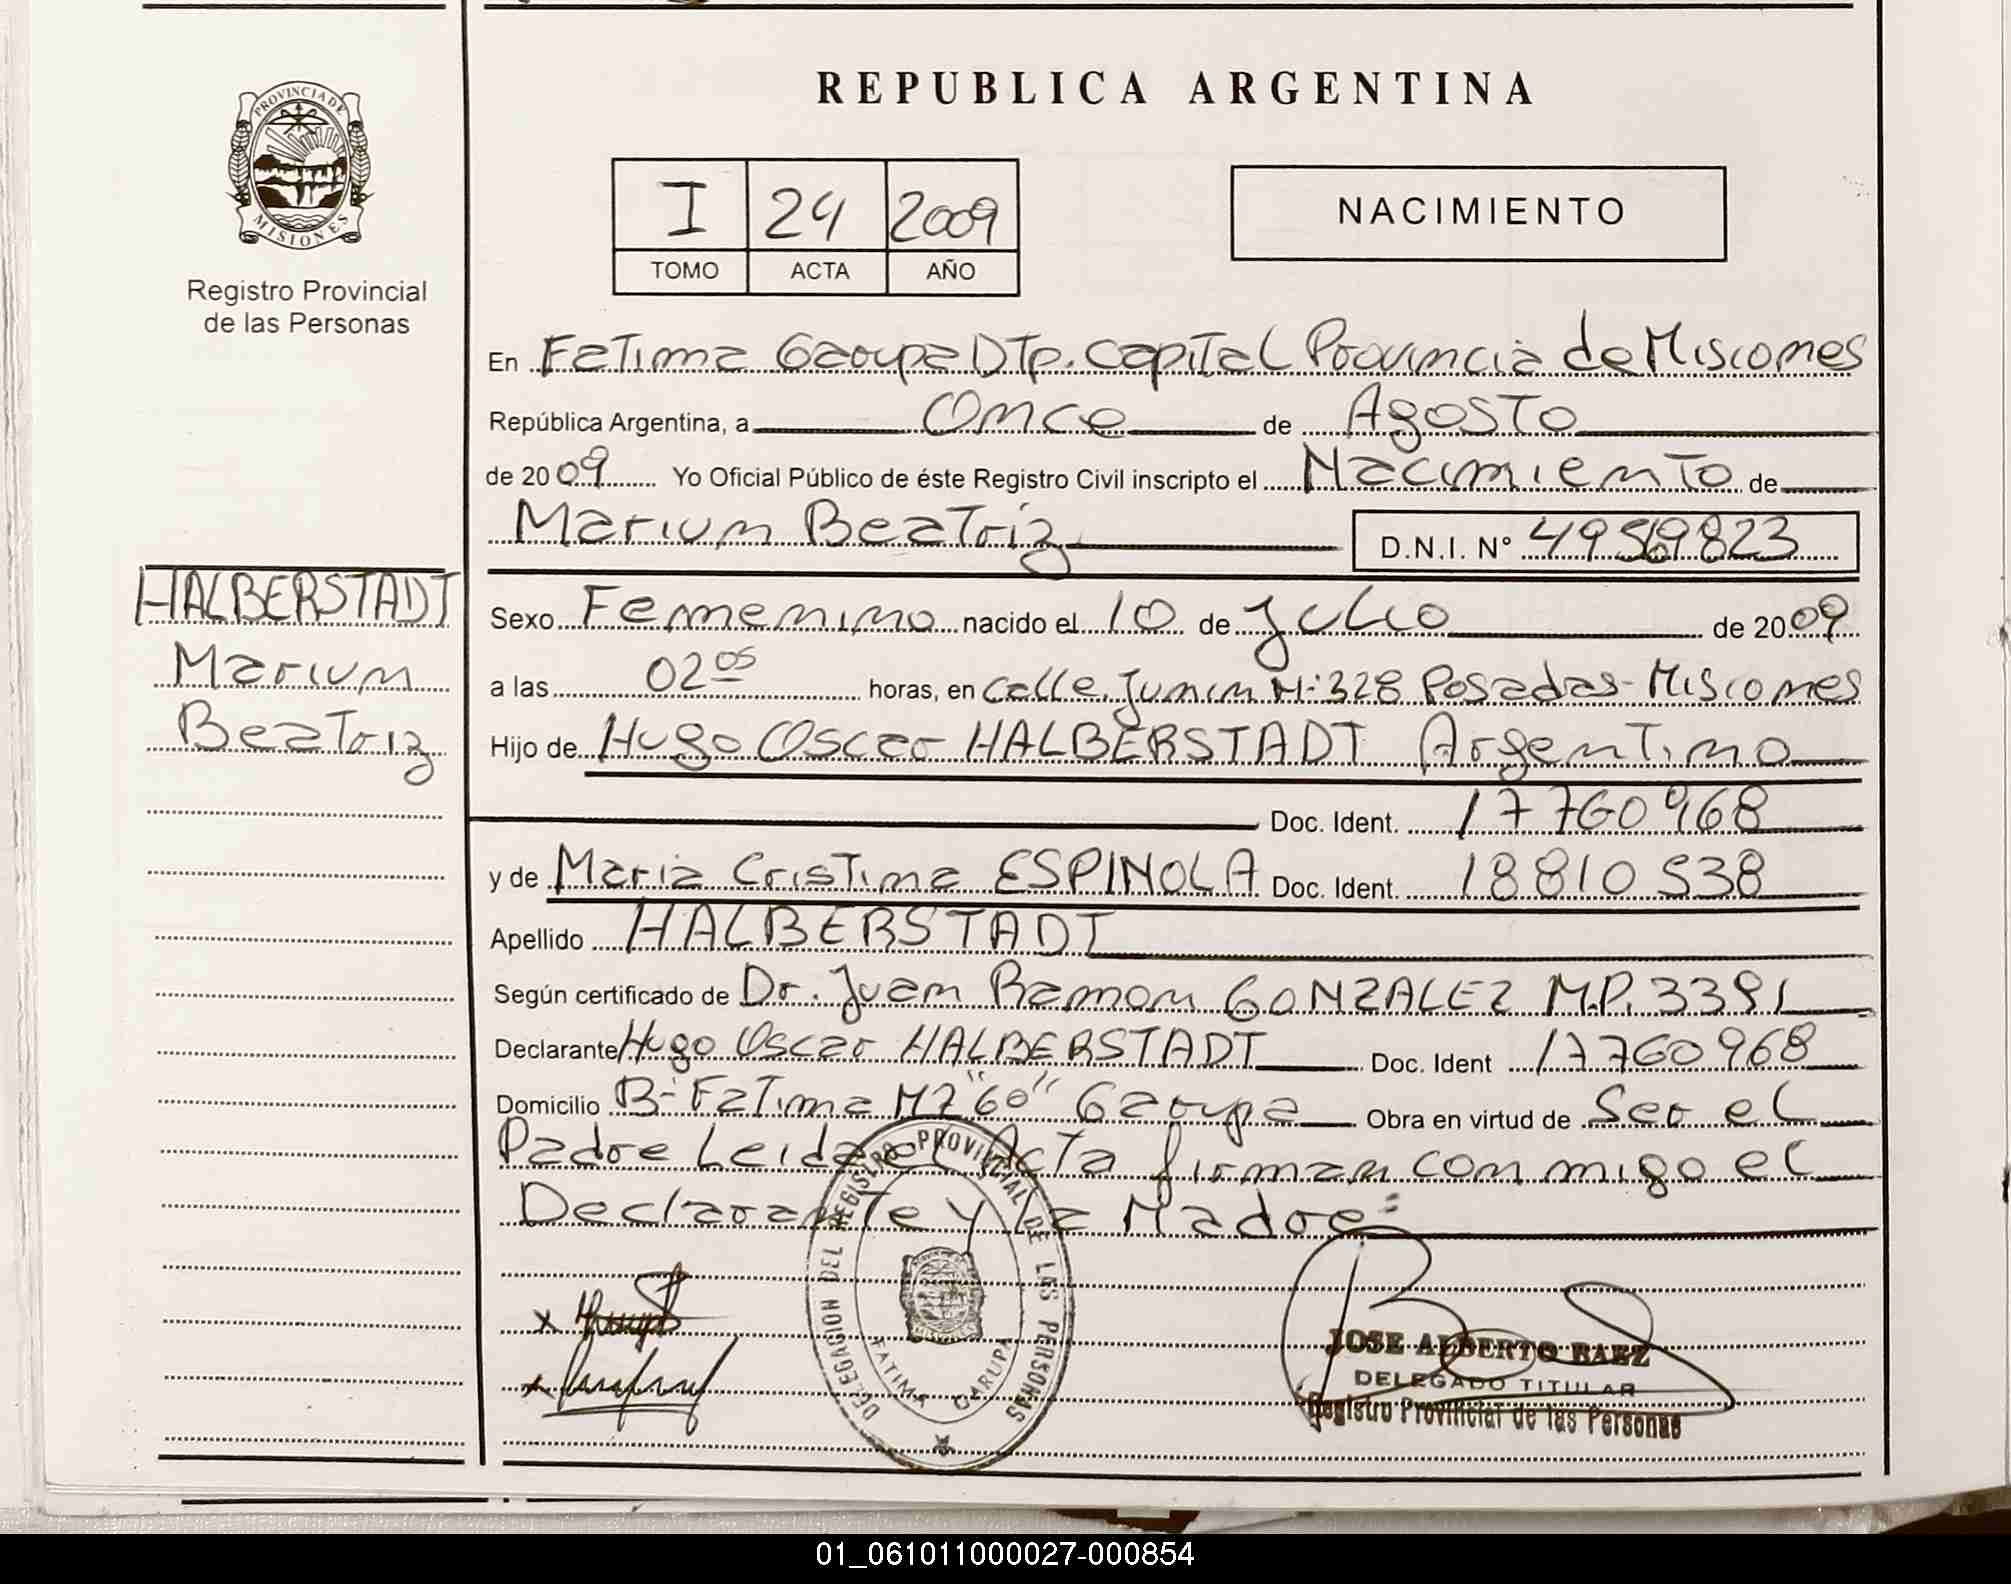 REPUBLICA ARGENTINA
PROVINCIA DE
MISIONES
Registro Provincial
de las Personas
I 24 2009
TOMO ACTA AÑO
NACIMIENTO
En Fatima Garupa Dtp. Capital Provincia de Misiones
República Argentina, a Once de Agosto
de 2009 Yo Oficial Público de éste Registro Civil inscripto el Nacimiento de
Marium Beatriz D.N.I. N° 49569823
HALBERSTADT
Marium
Beatriz
Sexo Femenino nacido el 10 de Julio de 2009
a las 02 05 horas, en Calle Junin N: 328 Posadas-Misiones
Hijo de Hugo Oscar HALBERSTADT Argentino
Doc. Ident. 17760968
y de Maria Cristina ESPINOLA Doc. Ident. 18810538
Apellido HALBERSTADT
Según certificado de Dr. Juan Ramon GONZALEZ M.P. 3391
Declarante Hugo Oscar HALBERSTADT Doc. Ident 17760968
Domicilio B- Fatima MZ "60" Garupa Obra en virtud de Ser el
Padre Leida el Acta firman conmigo el
Declarante y la Madre
DELEGACION DEL REGISTRO PROVINCIAL DE LAS PERSONAS
FATIMA GARUPA
JOSE ALBERTO BAEZ
DELEGADO TITULAR
Registro Provincial de las Personas
01_061011000027-000854